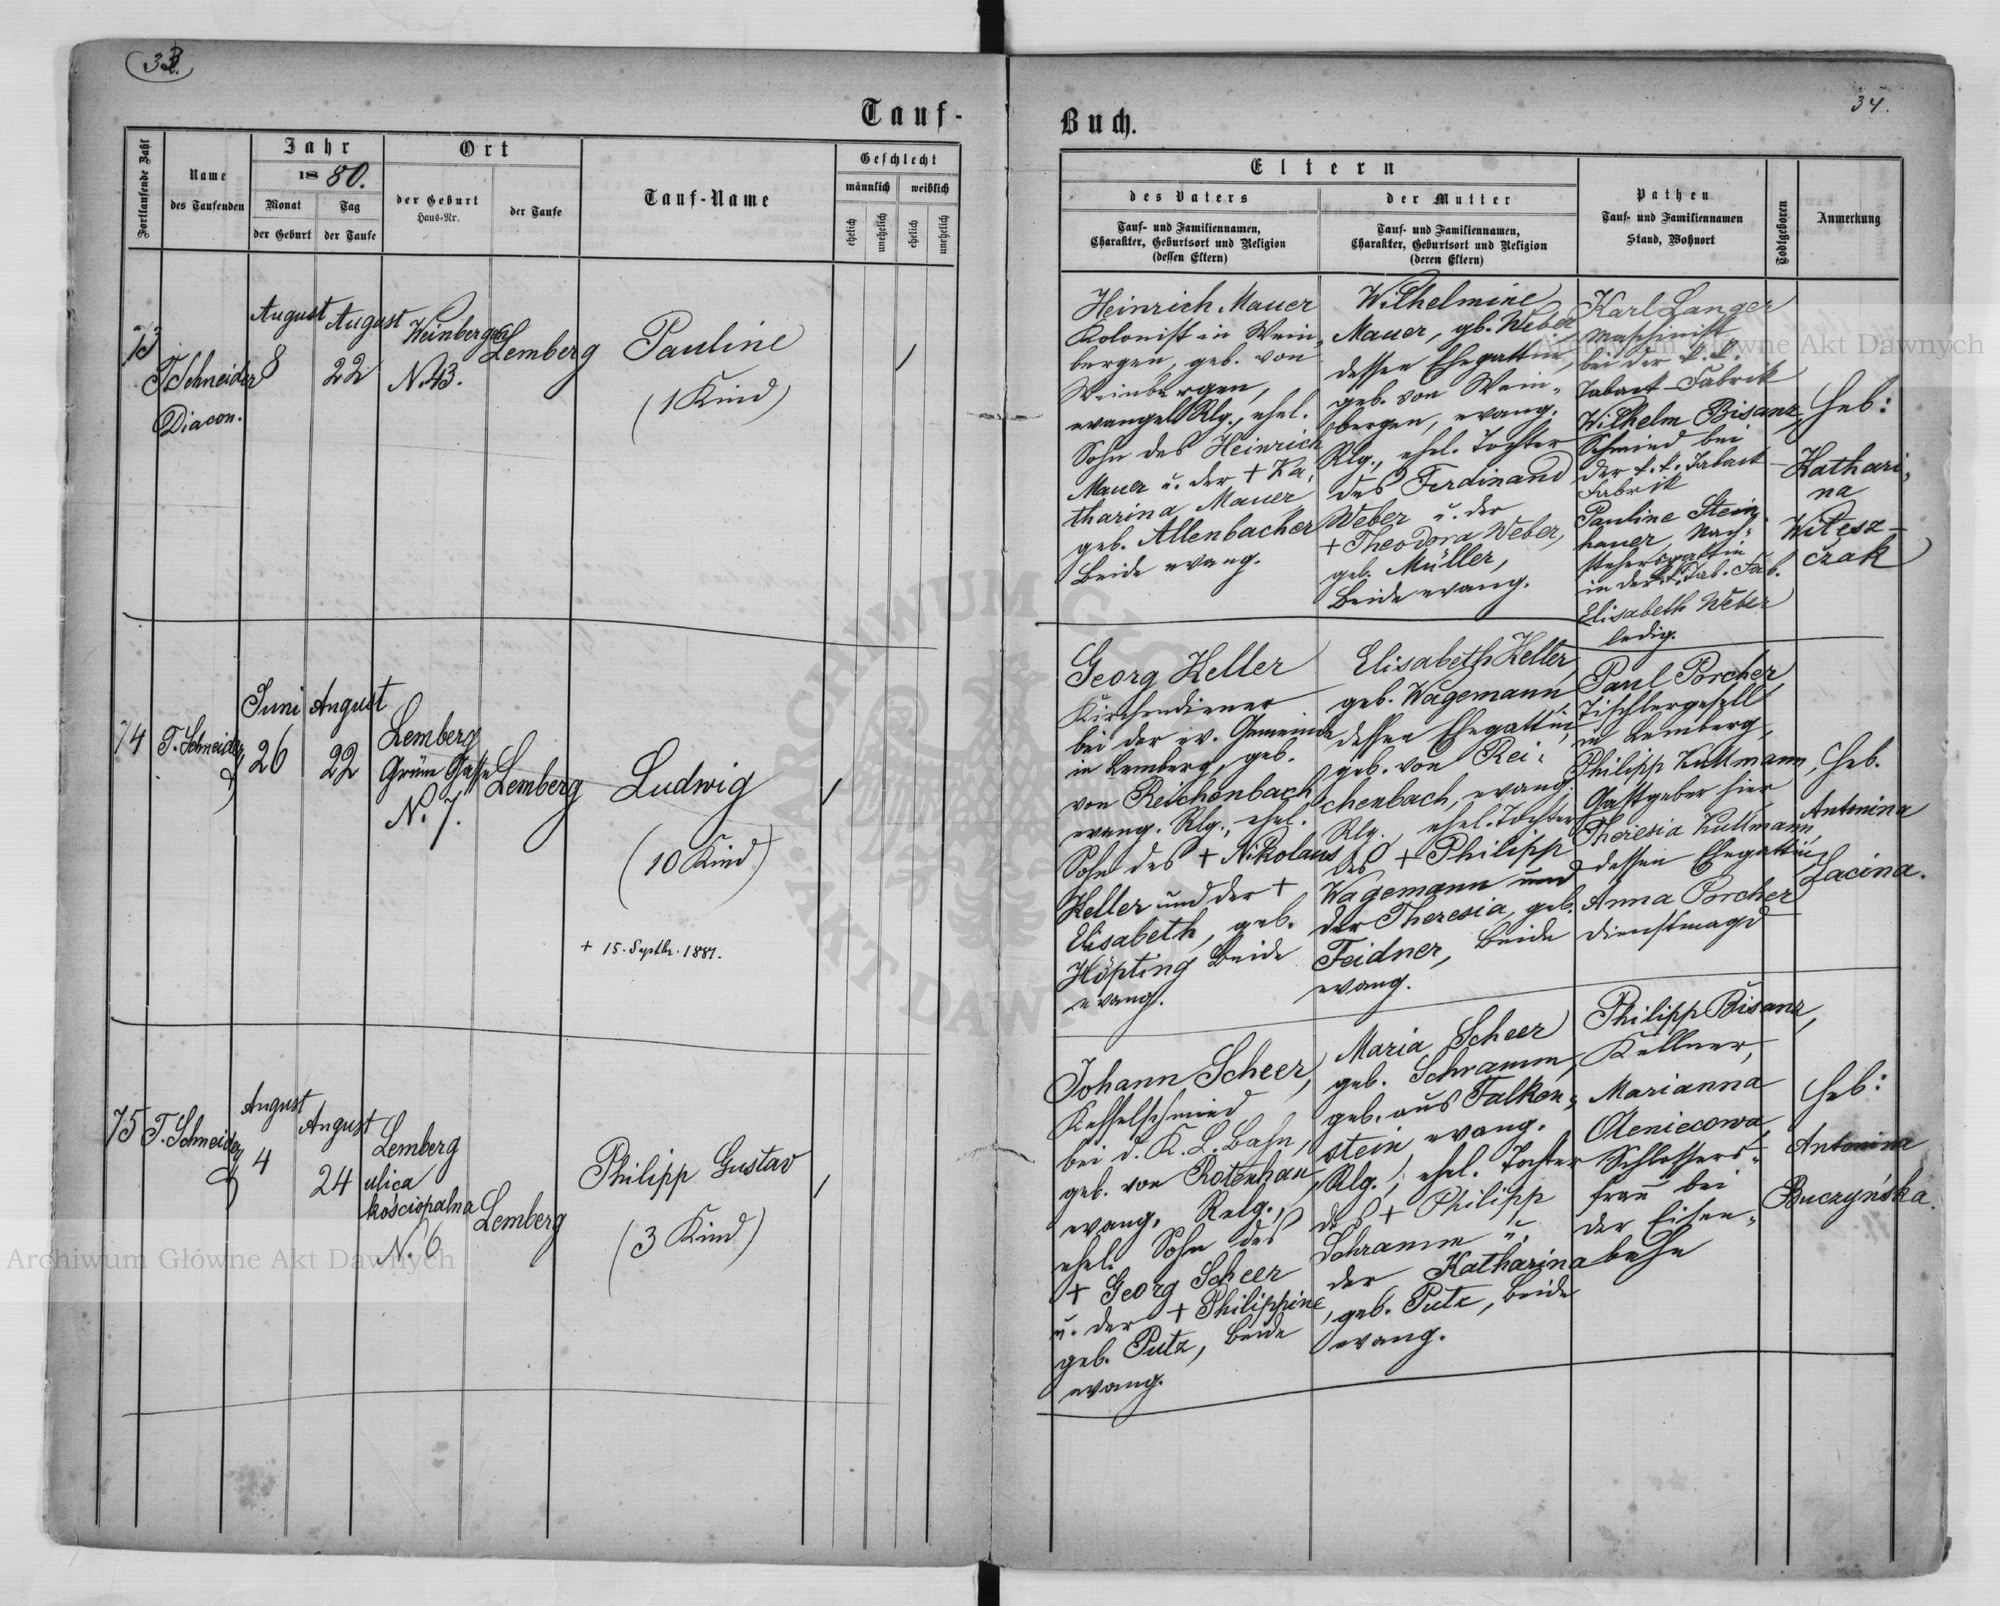 33.
Tauf-
Fortlaufende Zahl
Name
des Taufenden
Jahr
1880.
Monat
der Geburt
Tag
der Taufe
Ort
der Geburt
Haus-Nr.
der Taufe
Tauf-Name
Geschlecht
männlich
weiblich
ehelich
unehelich
ehelich
unehelich
73
T. Schneider
Diacon.
August
8
August
22
Weinbergen
N. 43.
Lemberg
Pauline
(1 Kind)
74
T. Schneider
Juni
26
August
22
Lemberg
Grüne Gasse
N. 7.
Lemberg
Ludwig
(10 Kind)
+ 15. Septbr. 1881.
75
T. Schneider
August
4
August
24
Lemberg
ulica
kościopalna
N. 6
Lemberg
Philipp Gustav
(3 Kind)
34.
Buch.
Eltern
des Vaters
Tauf- und Familiennamen,
Charakter, Geburtsort und Religion
(dessen Eltern)
der Mutter
Tauf- und Familiennamen,
Charakter, Geburtsort und Religion
(deren Eltern)
Pathen
Tauf- und Familiennamen
Stand, Wohnort
Todtgeboren
Anmerkung
Heinrich Mauer
Kolonist in Wein-
bergen, geb. von
Weinbergen,
evangel. Rlg., ehel.
Sohn des Heinrich
Mauer u. der + Ka-
tharina Mauer
geb. Allenbacher
beide evang.
Wilhelmine
Mauer, gb. Weber
dessen Ehegattin,
geb. von Wein-
bergen, evang.
Rlg., ehel. Tochter
des Ferdinand
Weber u. der
+ Theodora Weber,
geb. Müller,
beide evang.
Karl Langer
Maschinist
bei der k. k.
Tabact-Fabrik
Wilhelm Bisanz,
Schmied bei
der k. k. Tabact-
Fabrik
Pauline Stein-
hauer,
in der k. k. Tab. Fab.
Elisabeth Weber
ledig.
Heb:
Kathari-
na
Witesz-
czak
Georg Keller
Kirchendiener
bei der ev. Gemeinde
in Lemberg, geb.
von Reichenbach
evang. Rlg., ehel.
Sohn des + Nikolaus
Keller und der +
Elisabeth, geb.
Höpting beide
evang.
Elisabeth Keller
geb. Wagemann
dessen Ehegattin,
geb. von Rei-
chenbach, evang.
Rlg., ehel. Tochter
des + Philipp
Wagemann und
der Theresia, geb.
Feidner, beide
evang.
Paul Porcher
Tischlergesell
in Lemberg,
Philipp Kullmann,
Gastgeber hier
Theresia Kullmann,
dessen Ehegattin
Anna Porcher
Dienstmagd
Heb.
Antonina
Lacina.
Johann Scheer,
Kesselschmied
bei d. K. L. Bahn,
geb. von Rotenhan,
evang. Relg.,
ehel. Sohn des
+ Georg Scheer
u. der + Philippine
geb. Putz, beide
evang.
Maria Scheer
geb. Schramm,
geb. aus Falken-
stein, evang.
Rlg., ehel. Tochter
d. + Philipp
Schramm u.
der Katharina
geb. Putz, beide
evang.
Philipp Bisanz,
Kellner,
Marianna
Oleniecowa,
Schlossers-
frau bei
der Eisen-
bahn
Heb:
Antonina
Buczyńska.
Archiwum Główne Akt Dawnych
Archiwum Główne Akt Dawnych
ARCHIWUM GŁÓWNE AKT DAWNYCH